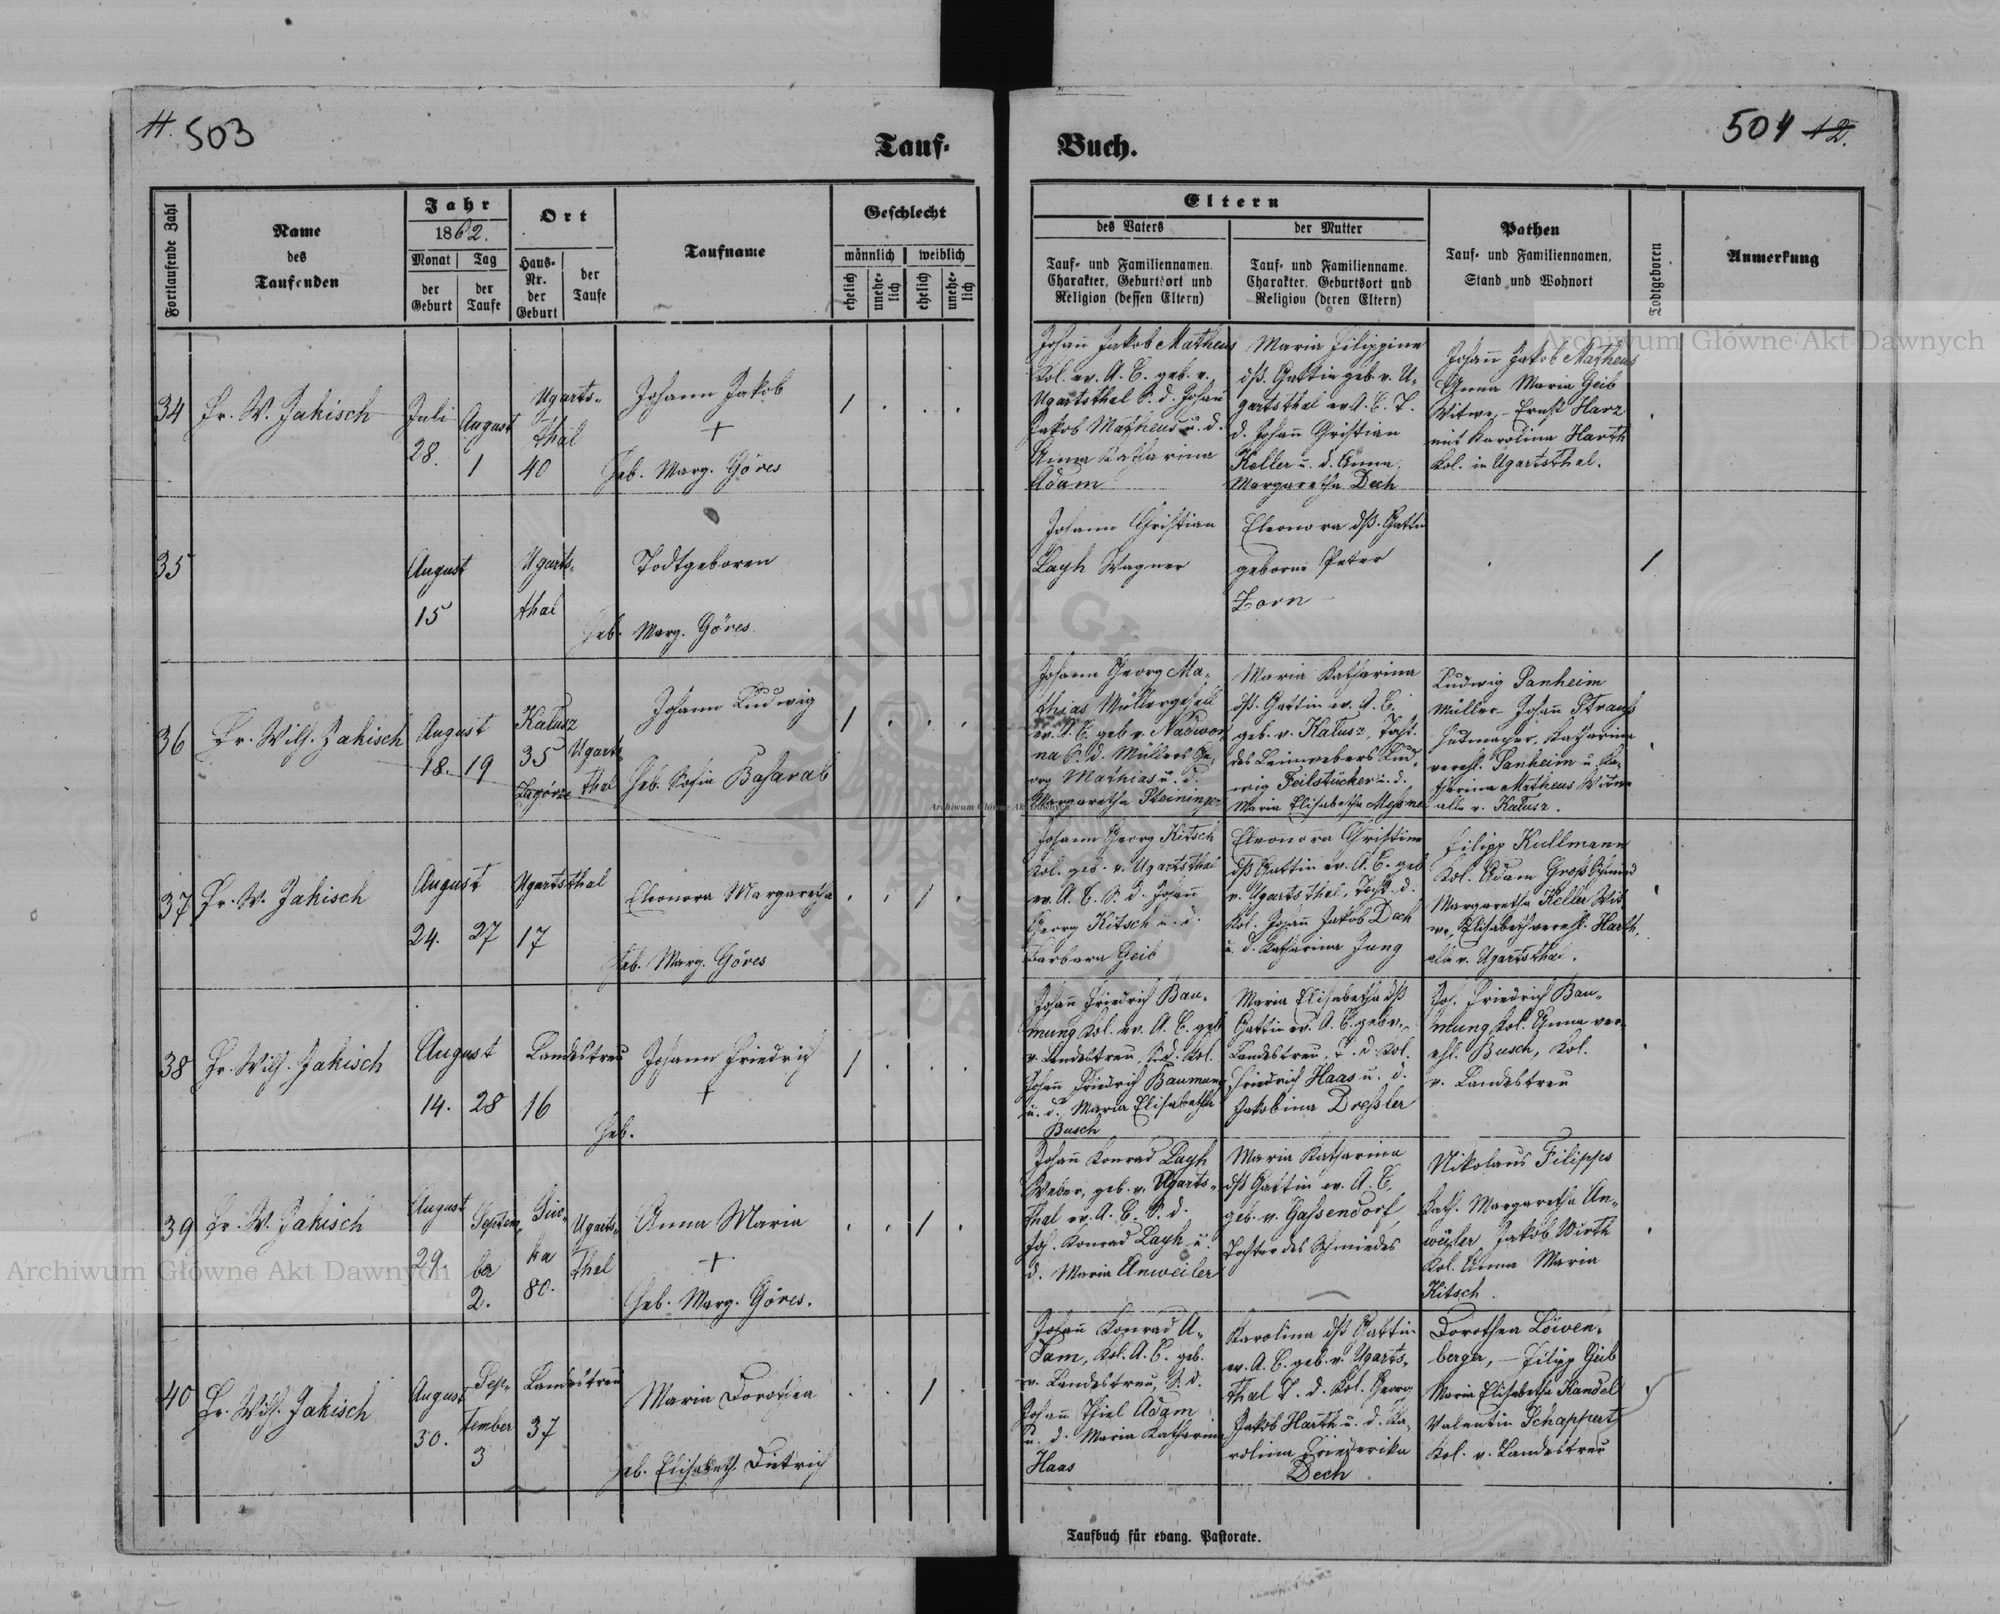 11. 503
Tauf-
Buch.
504 12.
Fortlaufende Zahl
Name
des
Taufenden
Jahr
1862.
Monat
Tag
der
Geburt
der
Taufe
Ort
Haus-
Nr.
der
Geburt
der
Taufe
Taufname
Geschlecht
männlich
weiblich
ehelich
unehe-
lich
ehelich
unehe-
lich
Eltern
des Vaters
Tauf- und Familiennamen.
Charakter, Geburtsort und
Religion (dessen Eltern)
der Mutter
Tauf- und Familienname.
Charakter, Geburtsort und
Religion (deren Eltern)
Pathen
Tauf- und Familiennamen,
Stand und Wohnort
Todtgeboren
Anmerkung
34
Fr. W. Jakisch
Juli
28.
August
1
Ugarts-
thal
40
Johann Jakob
+
Heb. Marg. Göres
1 . . .
Johann Jakob Matheus
Kol. ev. A. C. geb. v.
Ugartsthal S. d. Johañ
Jakob Matheus u. d.
Anna Katharina
Adam
Maria Filippine
dß. Gattin geb. v. U-
gartsthal ev. A. C. T.
d. Johañ Christian
Keller u. d. Anna
Margaretha Dech
Johañ Jakob Matheus
Anna Maria Geib
Witwe, - Ernst Harz
mit Karolina Harth
Kol. in Ugartsthal.
35
August
15
Ugarts-
thal
Todtgeboren
Heb. Marg. Göres
Johann Christian
Layh Wagner
Eleonora dß. Gattin
geborne Peter
Zorn
1
36
Fr. Wilh. Jakisch
August
18. 19
Katusz
35
Zagórze
Ugarts-
thal
Johann Ludwig
Heb. Rosia Basarab
1 . . .
Johann Georg Ma-
thias Müllergesell
ev. A. C. geb. v. Nadwor
na S. d. Müllers Ge-
org Mathias u. d.
Margaretha Steininger
Maria Katharina
dß. Gattin ev. A. C.
geb. v. Katusz, Tocht.
des Leinwebers Lud-
wig Feilstücker u. d.
Maria Elisabetha Meßner
Ludwig Panheim
Müller Johañ Strauß
Hutmacher, Katharina
verehl. Panheim u. Ka-
tharina Matheus Witwe
alle v. Katusz.
37
Fr. W. Jakisch
August
24. 27
Ugartsthal
17
Eleonora Margaretha
Heb. Marg. Göres
. . 1 .
Johann Georg Kitsch
Kol. geb. v. Ugartsthal
ev. A. C. S. d. Johañ
Georg Kitsch u. d.
Barbara Geib
Eleonora Christine
dß Gattin ev. A. C. geb
v. Ugartsthal, Tocht. d.
Kol. Johañ Jakob Dech
u. d. Katharina Jung
Filipp Kullmann
Kol. Adam Groß Schmied
Margaretha Keller Wit
we, Elisabeth verehl. Harth,
alle v. Ugartsthal.
38
Fr. Wilh. Jakisch
August
14. 28
Landestreu
16
Johann Friedrich
+
Heb.
1 . . .
Johañ Friedrich Bau-
mung Kol. ev. A. C. geb
v. Landestreu, S. d. Kol.
Johañ Friedrich Baumung
u. d. Maria Elisabetha
Busch
Maria Elisabetha dß
Gattin ev. A. C. geb v.
Landestreu, T. d Kol.
Friedrich Haas u. d.
Jakobina Dreßler
Joh. Friedrich Bau-
mung, Kol. Anna ver-
ehl. Busch, Kol.
v. Landestreu
39
Fr. W. Jakisch
August
29.
Septem-
ber
2.
Siw-
ka
80.
Ugarts-
thal
Anna Maria
+
Heb. Marg. Göres.
. . 1 .
Johañ Konrad Layh
Weber, geb. v. Ugarts-
thal ev. A. C. S. d.
Joh. Konrad Layh u.
d. Maria Anweiler
Maria Katharina
dß Gattin ev. A. C.
geb. v. Gaßendorf,
Tochter des Schmiedes
Nikolaus Filipps
Kath. Margaretha An-
weiler Jakob Wirth
Kol. Anna Maria
Kitsch.
40
Fr. Wilh. Jakisch
August
30.
Sep-
tember
3
Landestreu
37
Maria Dorothea
Heb. Elisabeth Dietrich
. . 1 .
Johañ Konrad A-
dam, Kol. A. C. geb.
v. Landestreu, S. d.
Johañ Thiel Adam
u. d. Maria Katharina
Haas
Karolina dß Gattin
ev. A. C. geb. v. Ugarts-
thal T. d. Kol. Georg
Jakob Harth u. d. Ka-
rolina Friederika
Dech
Dorothea Löwen-
berger, - Filipp Geib
Maria Elisabetha Kandel
Valentin Schappert
Kol. v. Landestreu
Taufbuch für evang. Pastorate.
Archiwum Główne Akt Dawnych
Archiwum Główne Akt Dawnych
Archiwum Główne Akt Dawnych